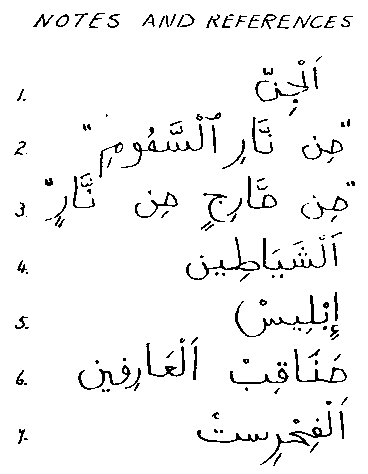 NOTES AND REFERENCES
1. اَلْجِنّ
2. "مِن نَّارِ ٱلسَّمُومِ"
3. "مِن مَّارِجٍ مِن نَّارٍ"
4. اَلْشَيَاطِين
5. إِبْلِيسْ
6. مَنَاقِبْ اَلْعَارِفين
7. اَلْفِهْرِست